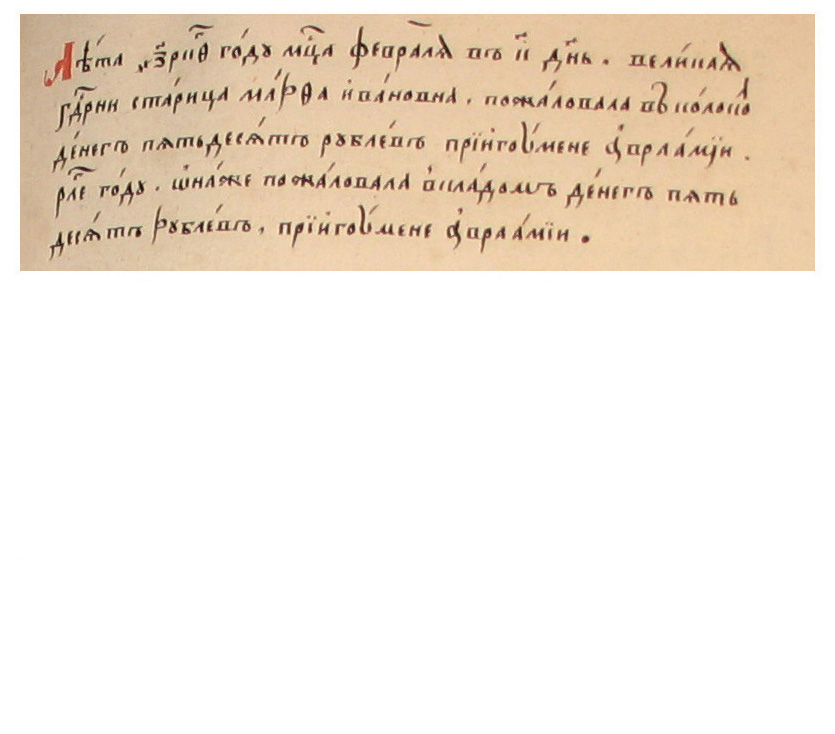 Лѣта ҂зр҃кѳ го́дꙋ мц҃а феврал҃ѧ въ к҃ дн҃ь . вели́каѧ
гдⷭ҇рни ста́рица ма́рѳа ива́новна , пожа́ловала въ ко́локоⷧ
де́негъ пѧтьдесѧ́тъ рꙋбле́въ прїиго́ꙋмене ѯ варлаа́мїи .
рл҃е го́дꙋ . ѡна́же пожа́ловала вкла́домъ де́негъ пѧть
десѧ́тъ рꙋбле́въ , прїиго́ꙋмене варлаа́мїи .